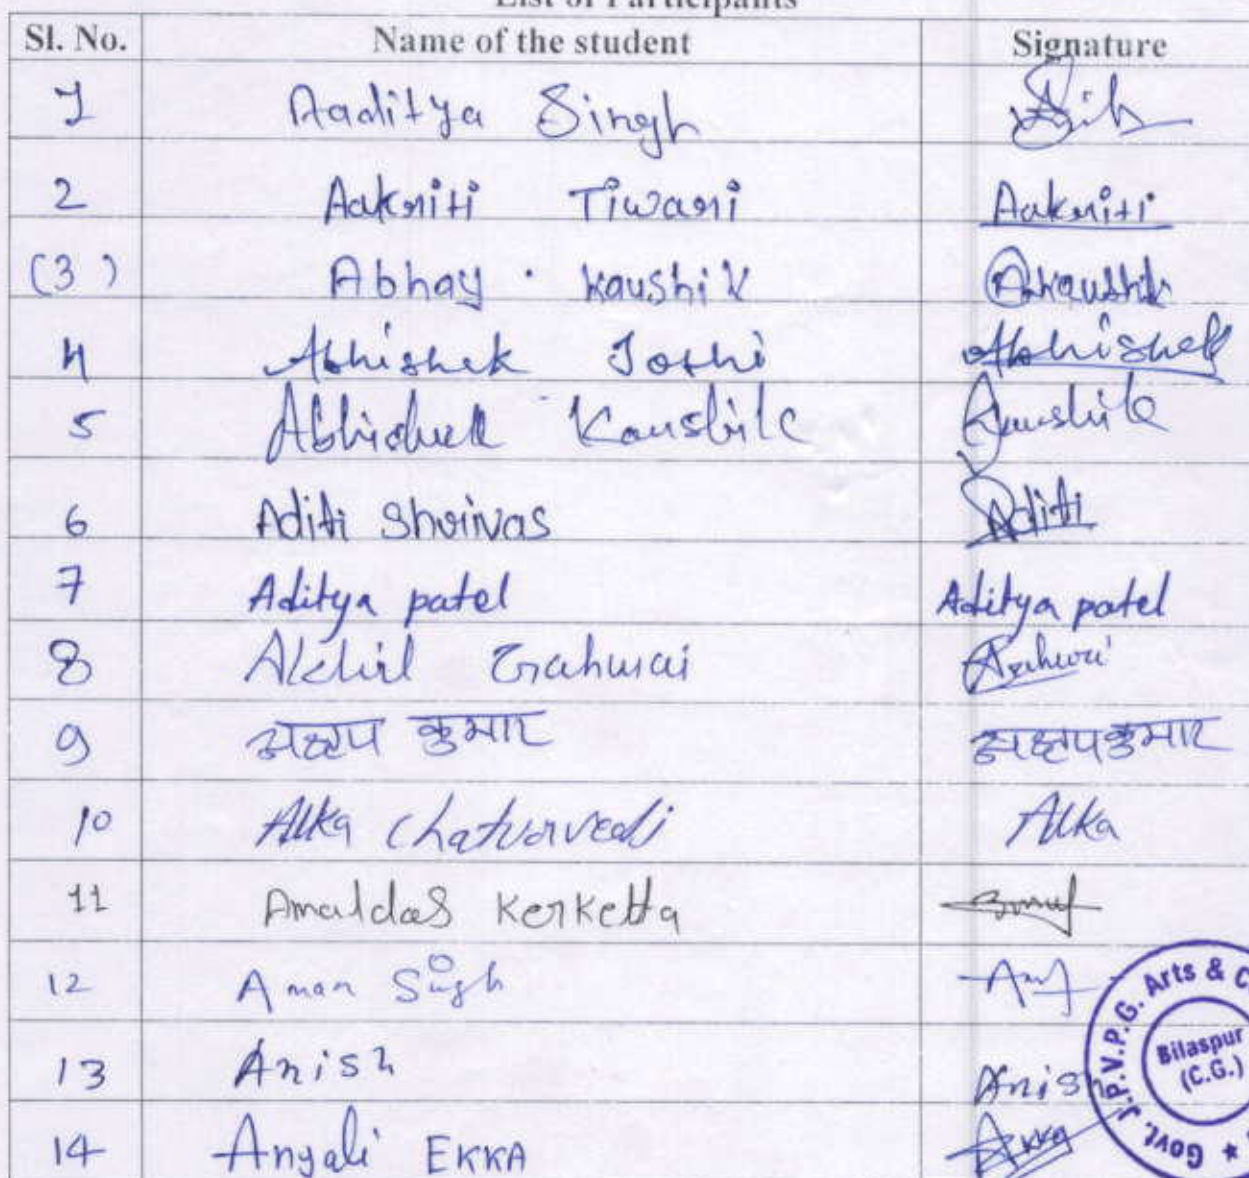 List of Participants
Sl. No. Name of the student Signature
1 Aaditya Singh
2 Aakriti Tiwari Aakriti
(3) Abhay . kaushik Akaushik
4 Abhishek Joshi Abhishek
5 Abhishek Kaushik Kaushik
6 Aditi Shrivas Aditi
7 Aditya patel Aditya patel
8 Akhil Grahwai
9 अक्षय कुमार अक्षय कुमार
10 Alka Chaturvedi Alka
11 Amaldas Kerketta
12 Aman Singh
13 Anish Anish
14 Anjali EKKA Ekka
Govt. J.P.V.P.G. Arts & C
Bilaspur
(C.G.)